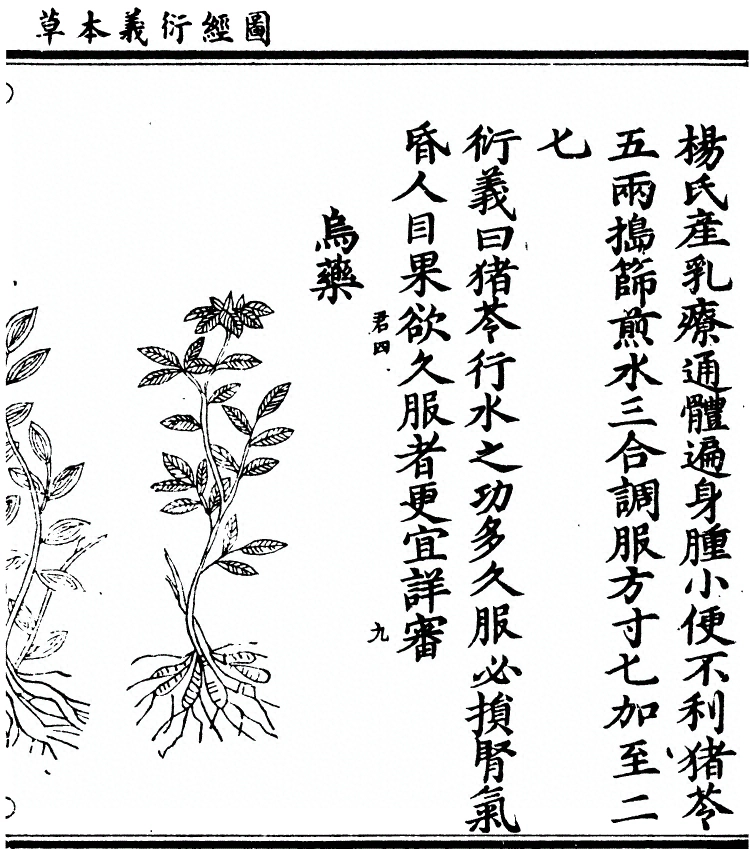 圖經衍義本草
楊氏産乳療通體遍身腫小便不利猪苓
五兩搗篩煎水三合調服方寸匕加至二
匕
衍義曰猪苓行水之功多久服必損腎氣
昏人目果欲久服者更宜詳審
君四
九
烏藥